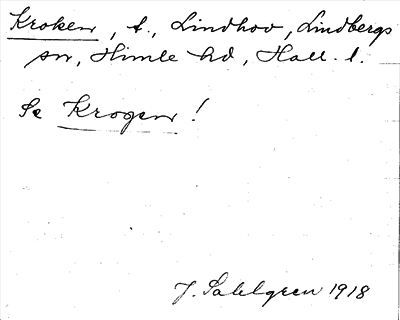 Kroken, t., Lindhov, Lindbergs
sn, Himle hd, Hall. l.
Se Krogen!
J. Sahlgren 1918